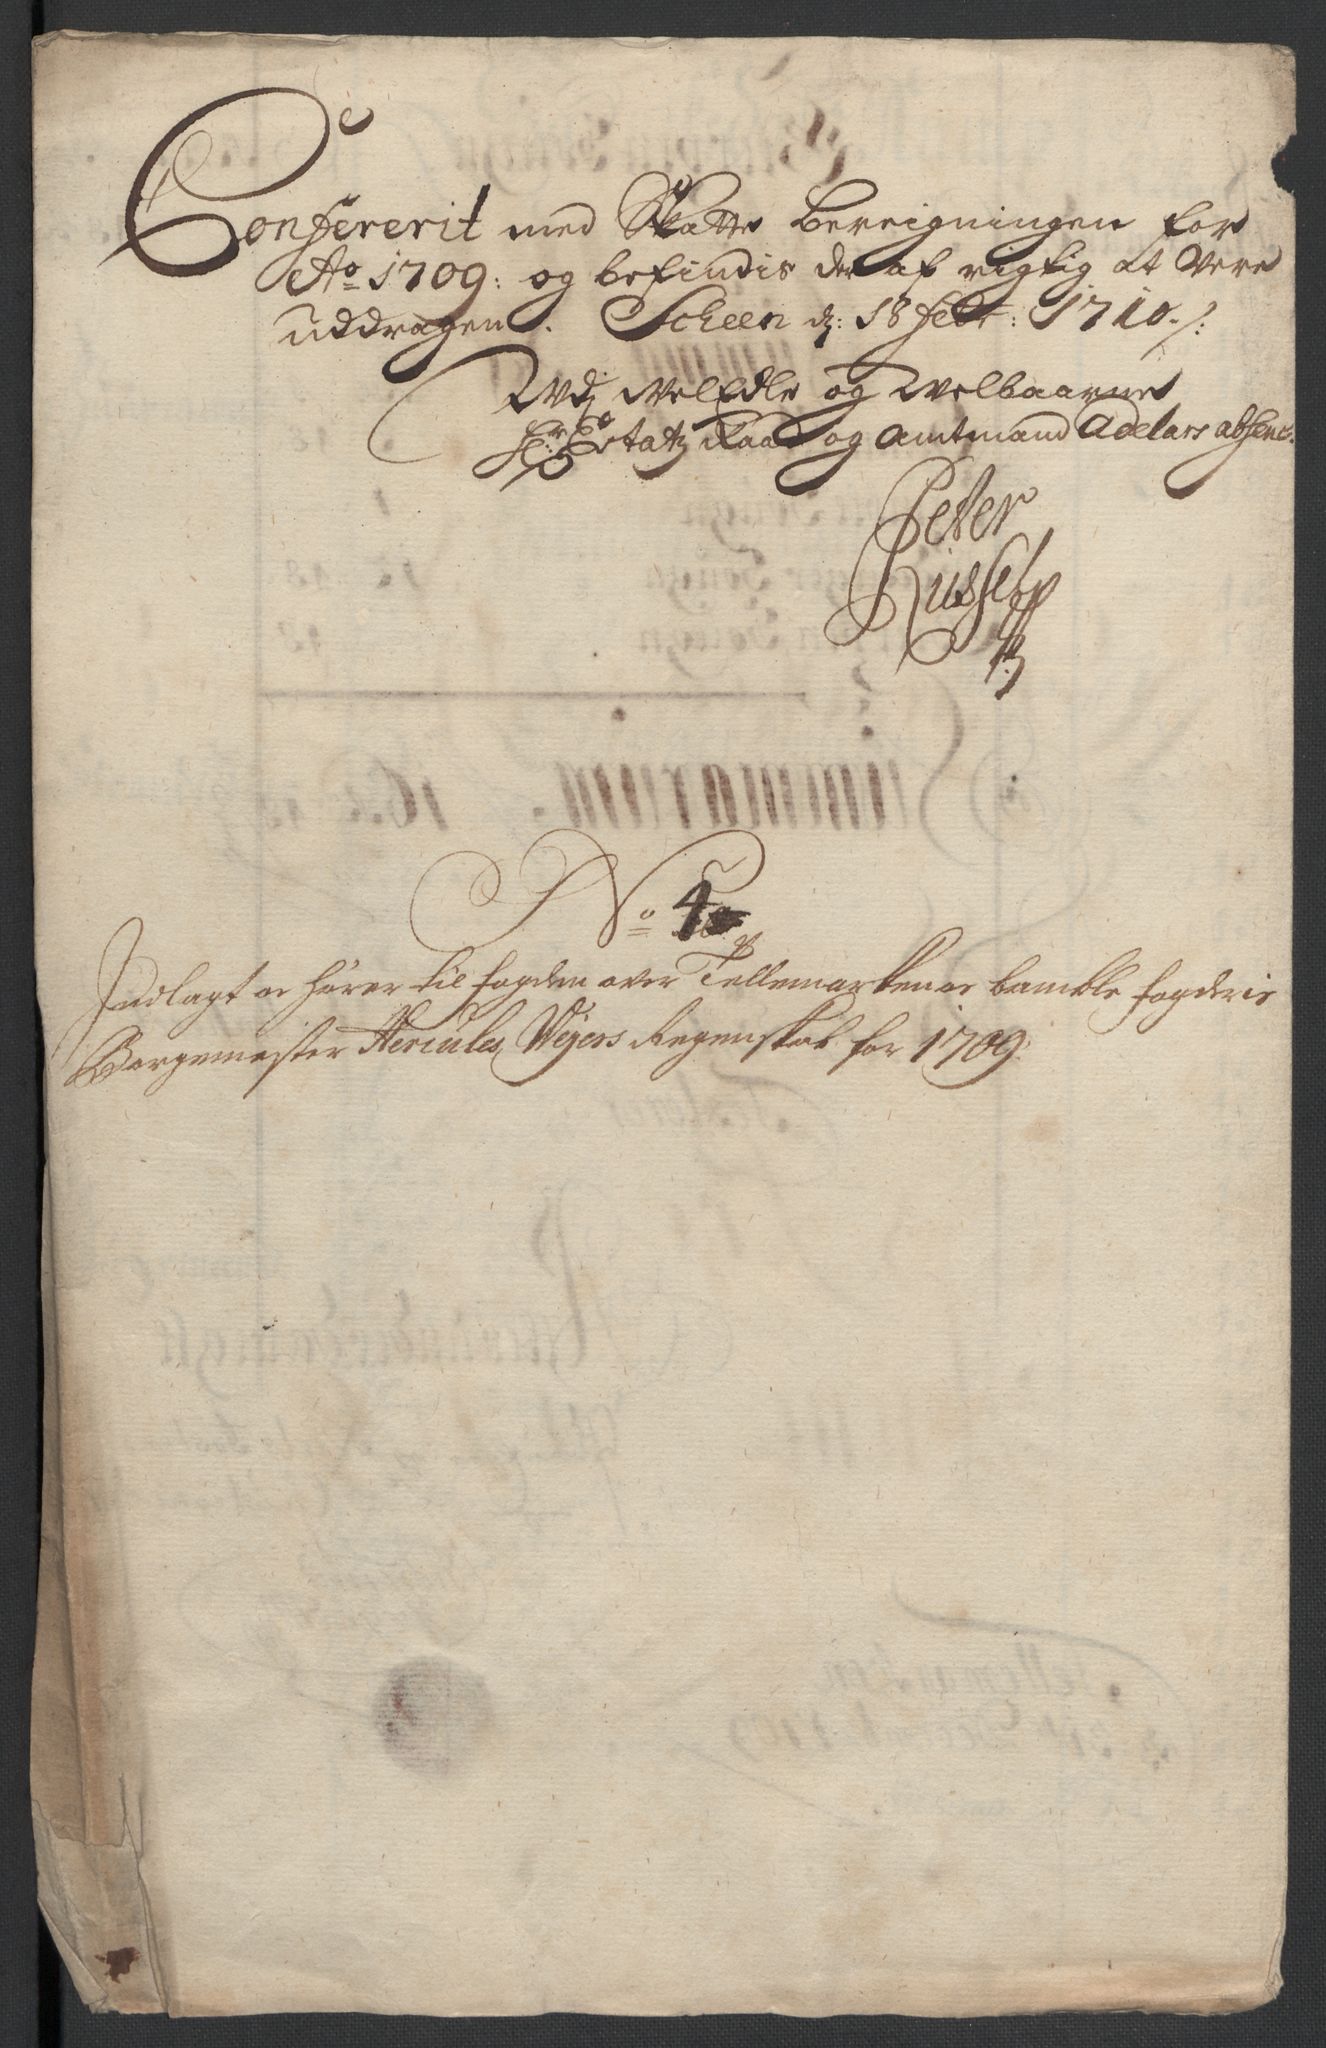 Confererit med Skatte bereigningen for
Ao 1709: og befindis der af rigtig at Vere
uddragen. Scheen d: 18 Febr: 1710./:
Udj WelEdle og Welbaarne
Hr: Etatz Raad og Amtmand Adelars absence.
Peter
No 4
Indlagt oc hører til fogden over Tellemarken oc bamble fogderie
Borgemester Hercules Weyers Regenskab for 1709: